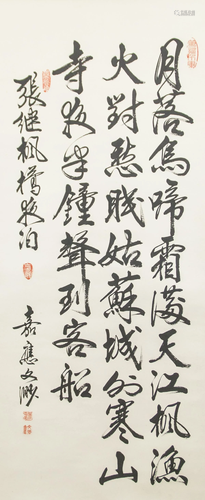 月落烏啼霜滿天江楓漁
火對愁眠姑蘇城外寒山
寺夜半鐘聲到客船
張继楓橋夜泊
嘉應文